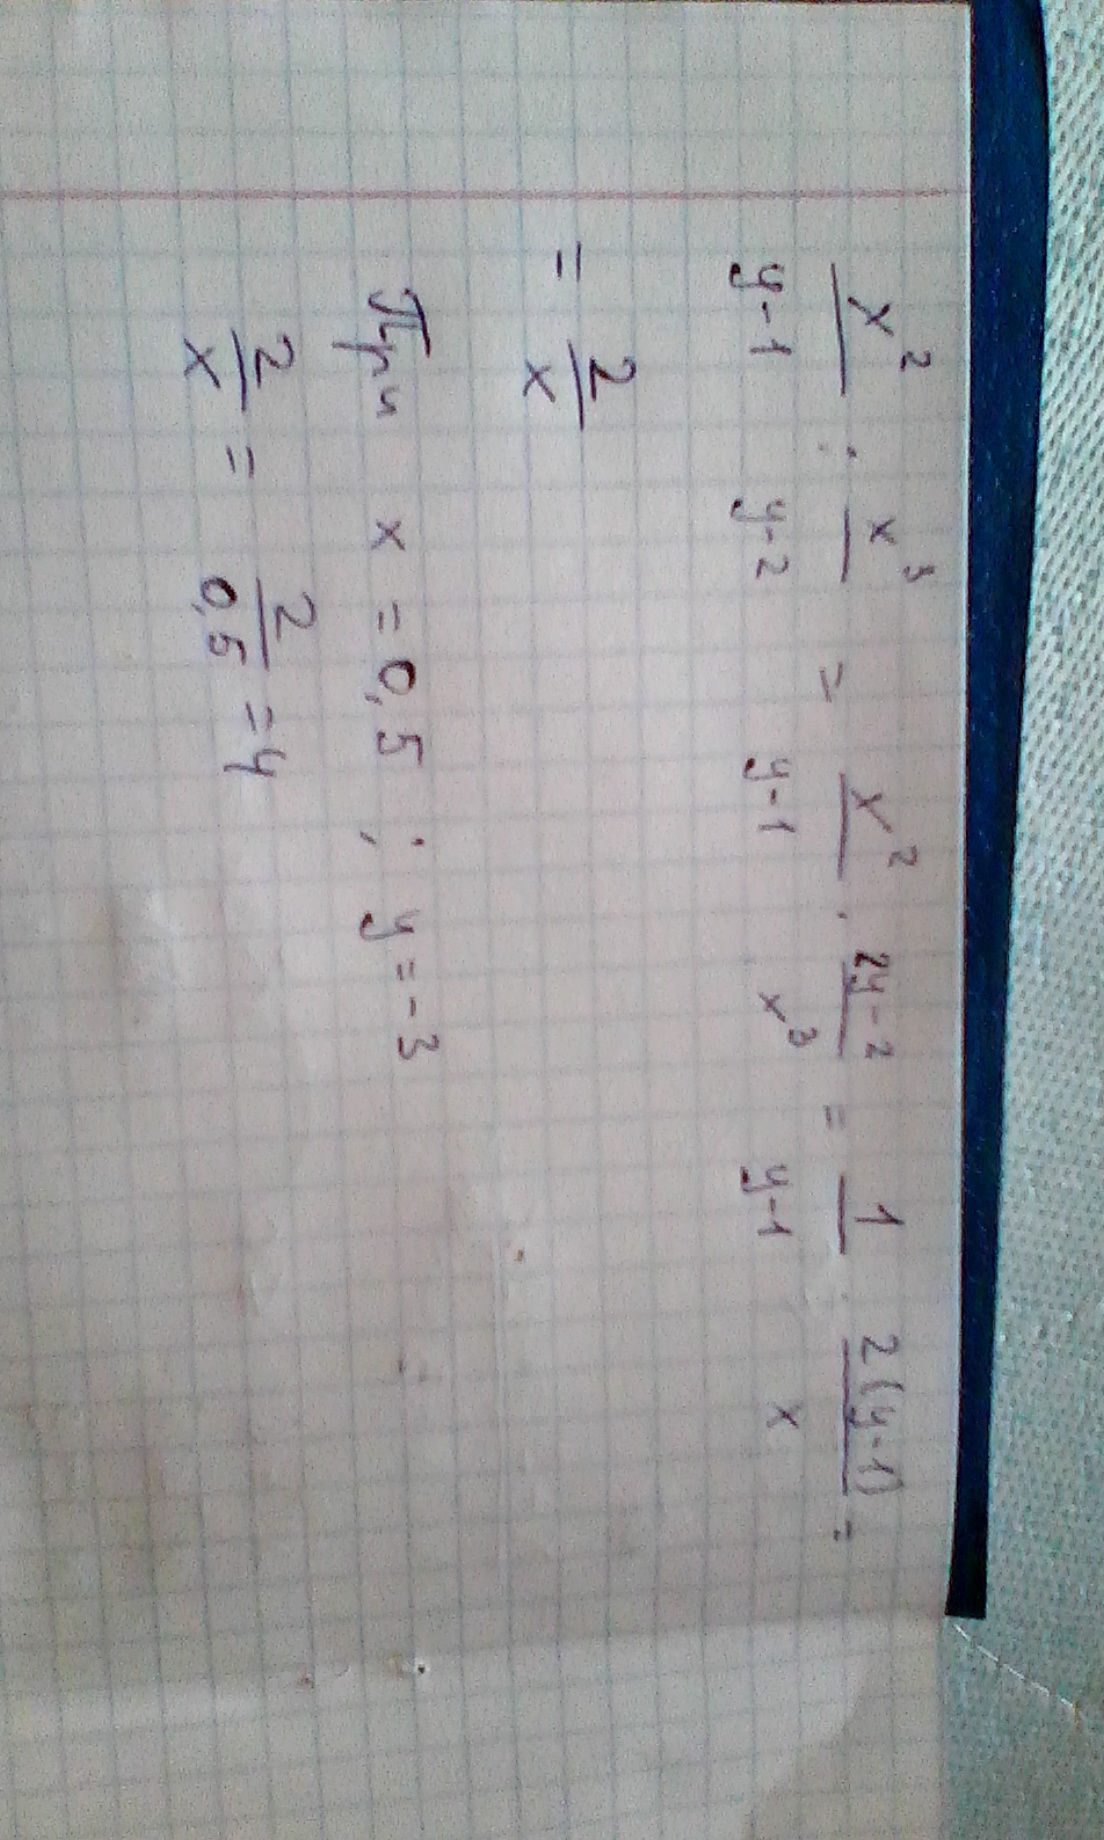 x²/(y-1) : x³/(y-2) = x²/(y-1) · (2y-2)/x³ = 1/(y-1) · 2(y-1)/x =
= 2/x
При x = 0,5 ; y = -3
2/x = 2/0,5 = 4